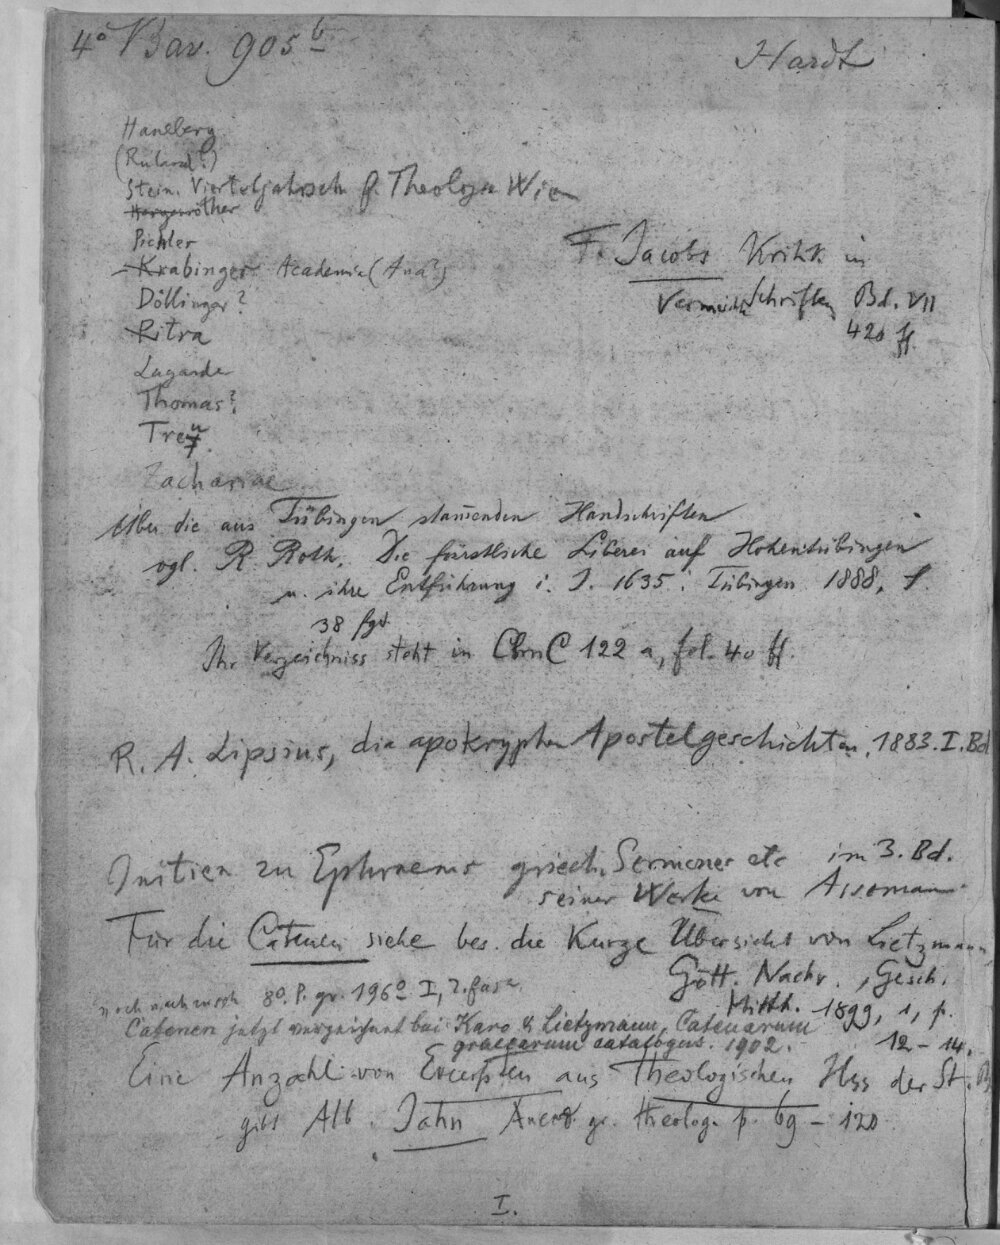 4° Bav. 905 b
Hardt
Haneberg
(Ruland?)
Stein. Vierteljahrsch f. Theologie Wien
Hergenröther
Pichler
Krabinger Academie (And?)
F. Jacobs Kritik in
Vermischte Schriften Bd. VII
420 ff.
Döllinger?
Pitra
Lagarde
Thomas?
Treu
Zachariae
Über die aus Tübingen stammenden Handschriften
vgl. R. Roth, Die fürstliche Liberei auf Hohentübingen
u. ihre Entführung i. J. 1635. Tübingen 1888, S.
38 fgd
Ihr Verzeichniss steht in CbmC 122 a, fol. 40 ff.
R. A. Lipsius, die apokryphen Apostelgeschichten, 1883. I. Bd
Initien zu Ephraems griech. Sermones etc im 3. Bd.
seiner Werke von Asseman
Für die Catenen siehe bes. die kurze Übersicht von Lietzmann,
Gött. Nachr., Gesch.
Mitth. 1899, 1, p.
12–14.
8°. P. gr. 196° I, 2. fasc.
Catenen jetzt verzeichnet bei Karo & Lietzmann, Catenarum
graecarum catalogus. 1902.
Eine Anzahl von Excerpten aus theologischen Hss der St. B
gibt Alb. Jahn Anecd. gr. theolog. p. 69–120
I.